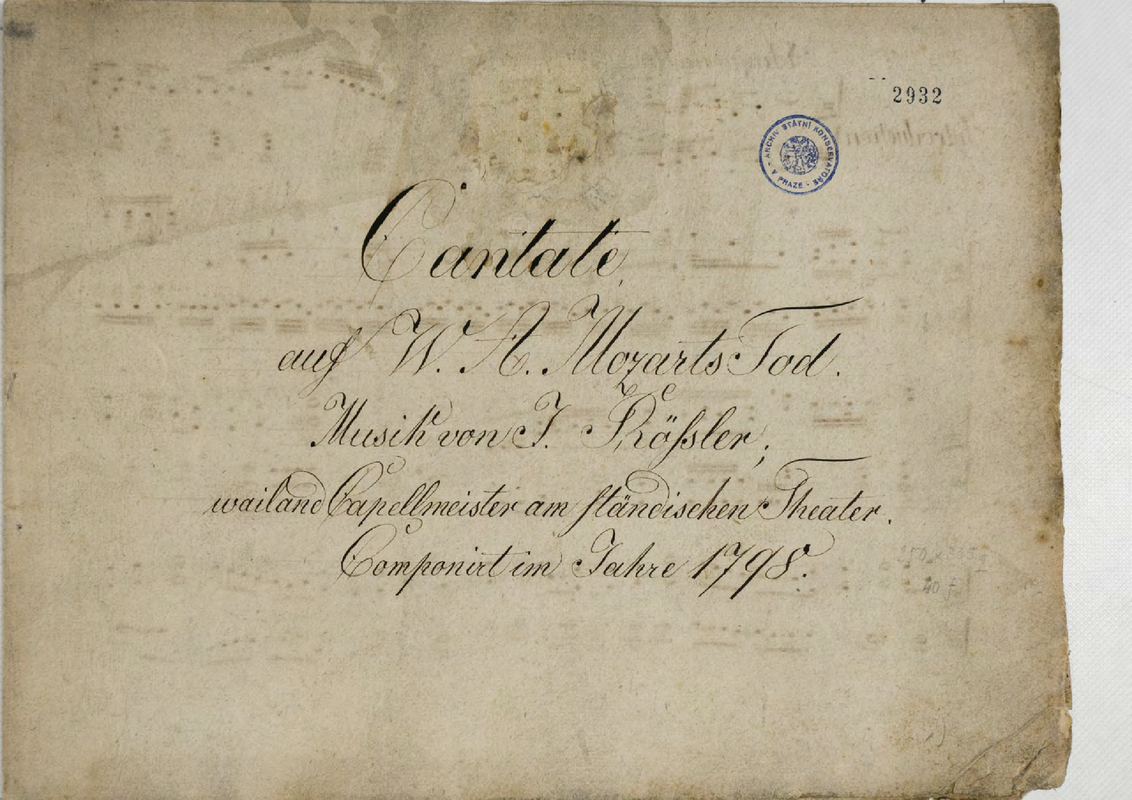 2932
ARCHIV STÁTNÍ KONSERVATOŘE V PRAZE
Cantate
auf W. A. Mozarts Tod.
Musik von J. Rößler,
wailand Capellmeister am ständischen Theater.
Componirt im Jahre 1798.